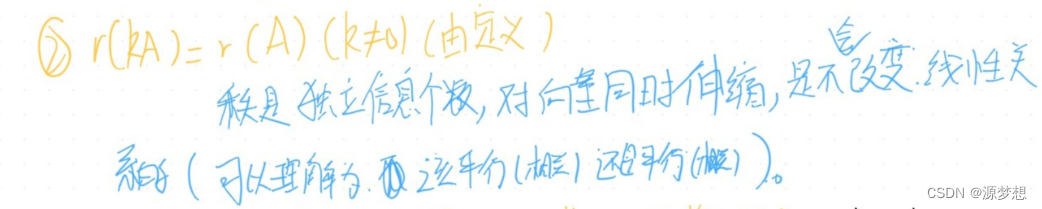 ② r(kA)=r(A)(k≠0)(由定义)
秩是独立信息个数,对向量同时伸缩,是不会改变.线性关
系的(可以理解为.该平行(相关)还是平行(相关))。
CSDN @源梦想